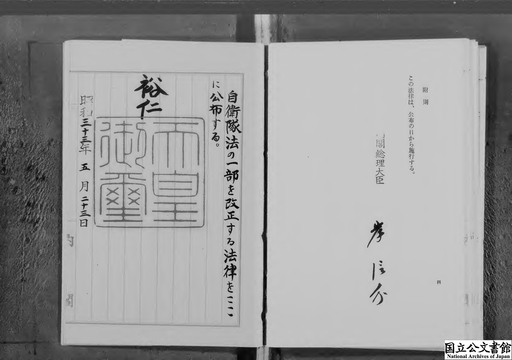 附則
この法律は、公布の日から施行する。
内閣総理大臣
岸信介
自衛隊法の一部を改正する法律をここ
に公布する。
裕仁
天皇
御璽
昭和三十三年五月二十三日
国立公文書館
National Archives of Japan